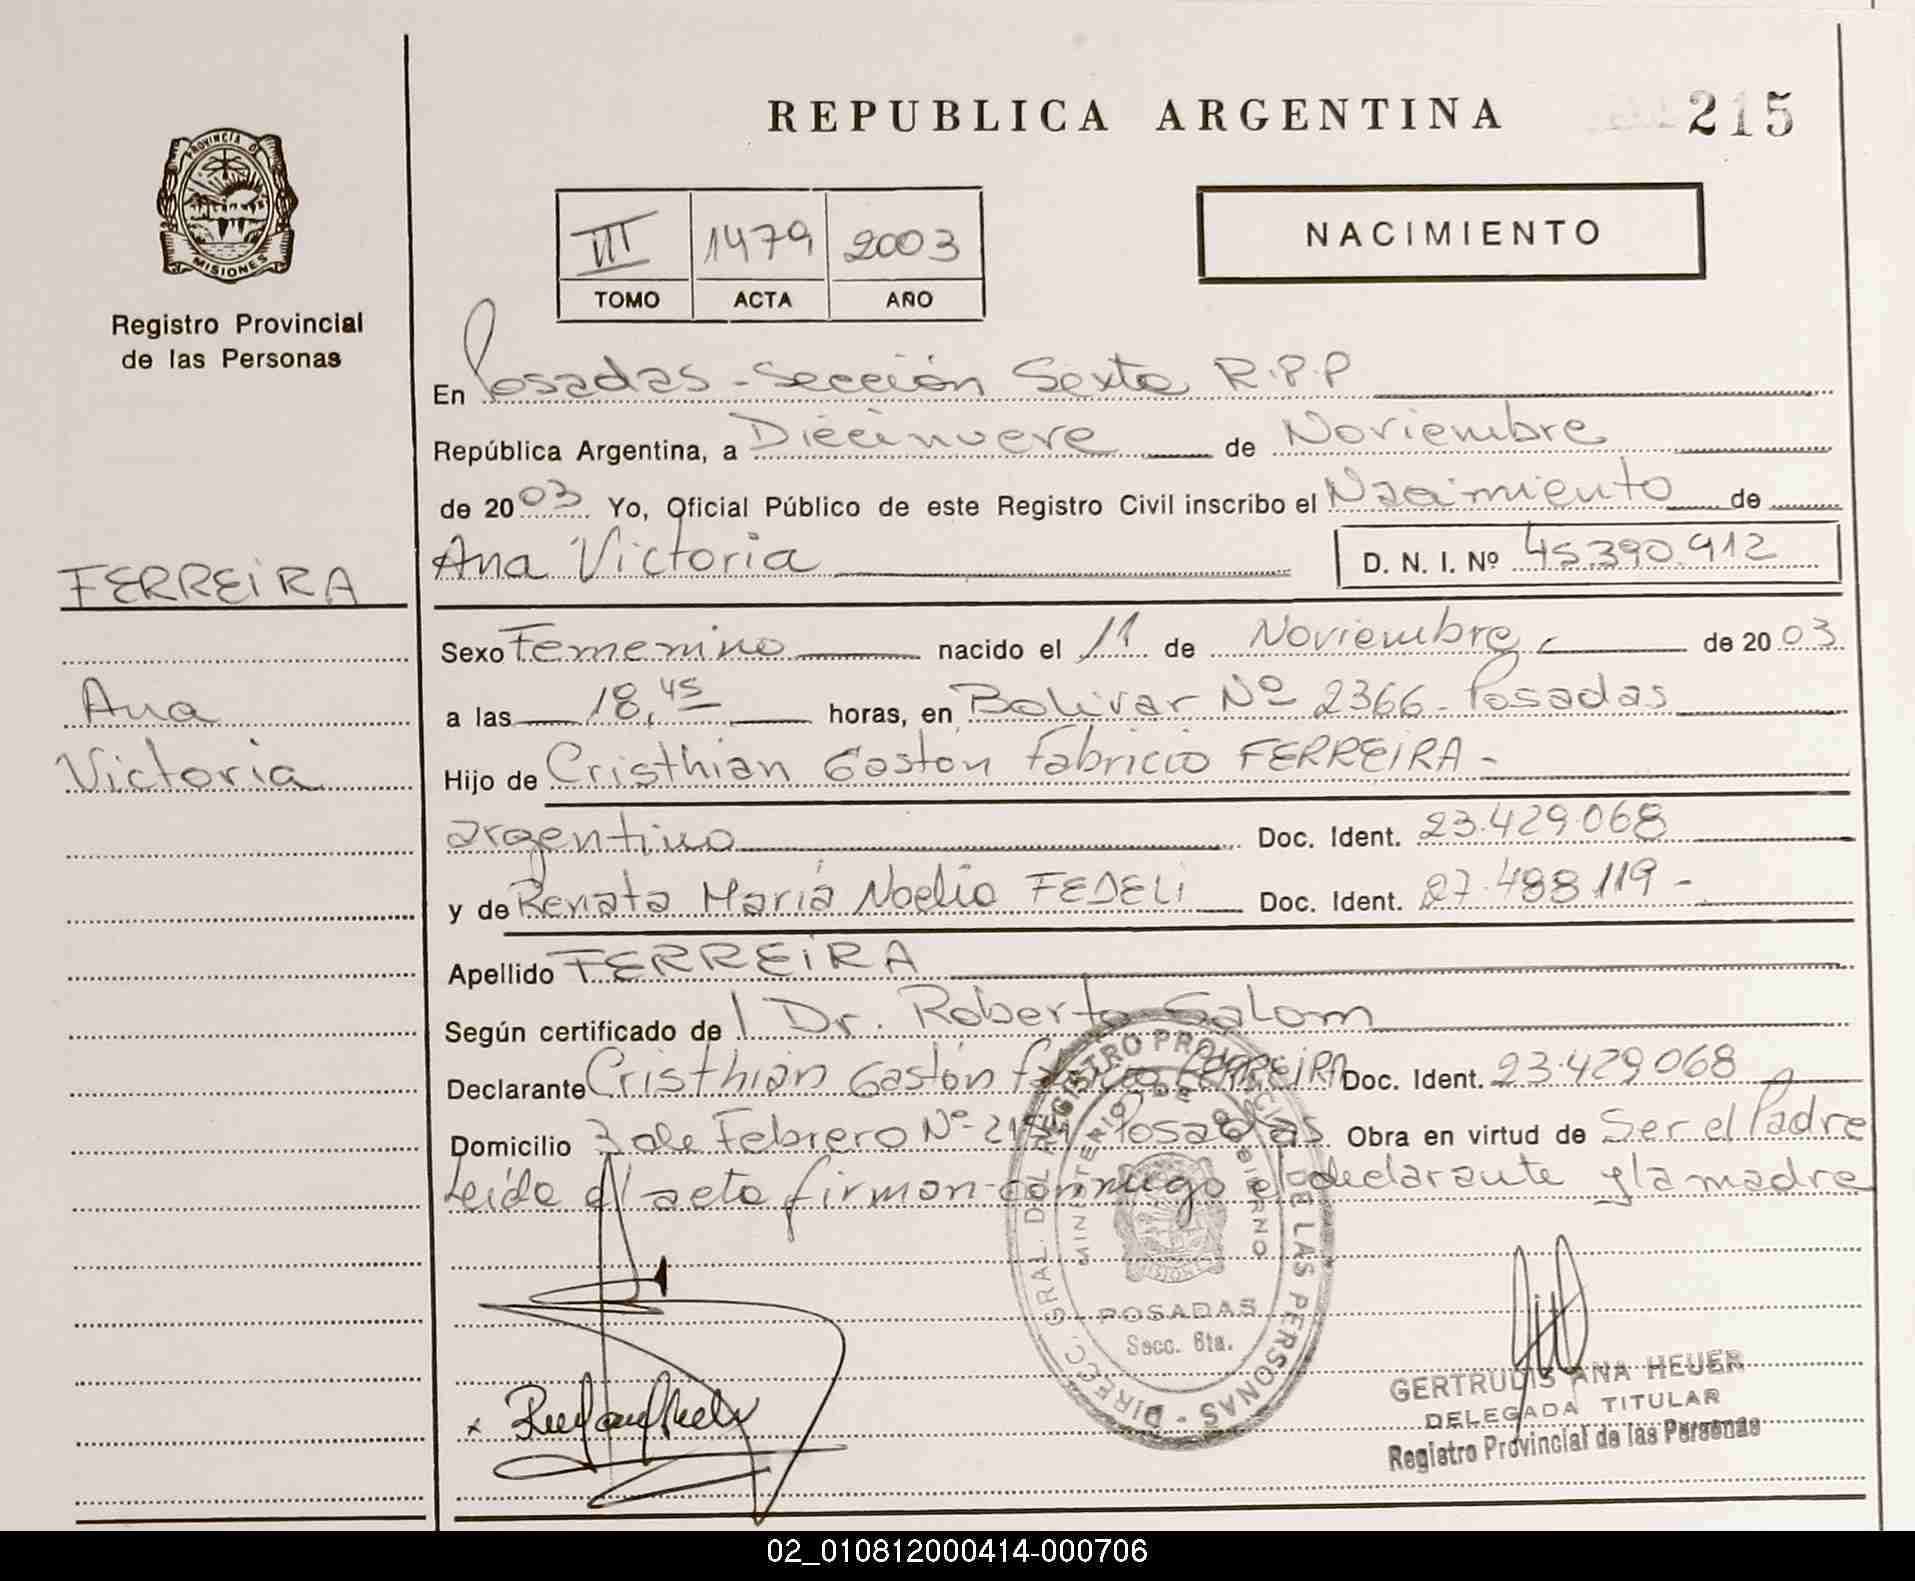 REPUBLICA ARGENTINA
215
PROVINCIA DE
MISIONES
Registro Provincial
de las Personas
III 1479 2003
TOMO ACTA AÑO
NACIMIENTO
En Posadas - Sección Sexta R.P.P
República Argentina, a Diecinueve de Noviembre
de 2003 Yo, Oficial Público de este Registro Civil inscribo el Nacimiento de
Ana Victoria D. N. I. Nº 45.390.912
FERREIRA
Ana
Victoria
Sexo Femenino nacido el 11 de Noviembre de 2003
a las 18,45 horas, en Bolivar Nº 2366 - Posadas
Hijo de Cristhian Gastón Fabricio FERREIRA -
argentino Doc. Ident. 23.429.068
y de Renata María Noelia FEDELi Doc. Ident. 27.488.119 -
Apellido FERREIRA
Según certificado de Dr. Roberto Salom
Declarante Cristhian Gastón Fabricio FERREIRA Doc. Ident. 23.429.068
Domicilio 3 de Febrero Nº Posadas Obra en virtud de Ser el Padre
Leída el acta firman conmigo el declarante y la madre
DIRECC. GRAL. DEL REGISTRO PROVINCIAL DE LAS PERSONAS -
MINISTERIO DE GOBIERNO
POSADAS
Secc. 6ta.
GERTRUDIS ANA HEUER
DELEGADA TITULAR
Registro Provincial de las Personas
02_010812000414-000706